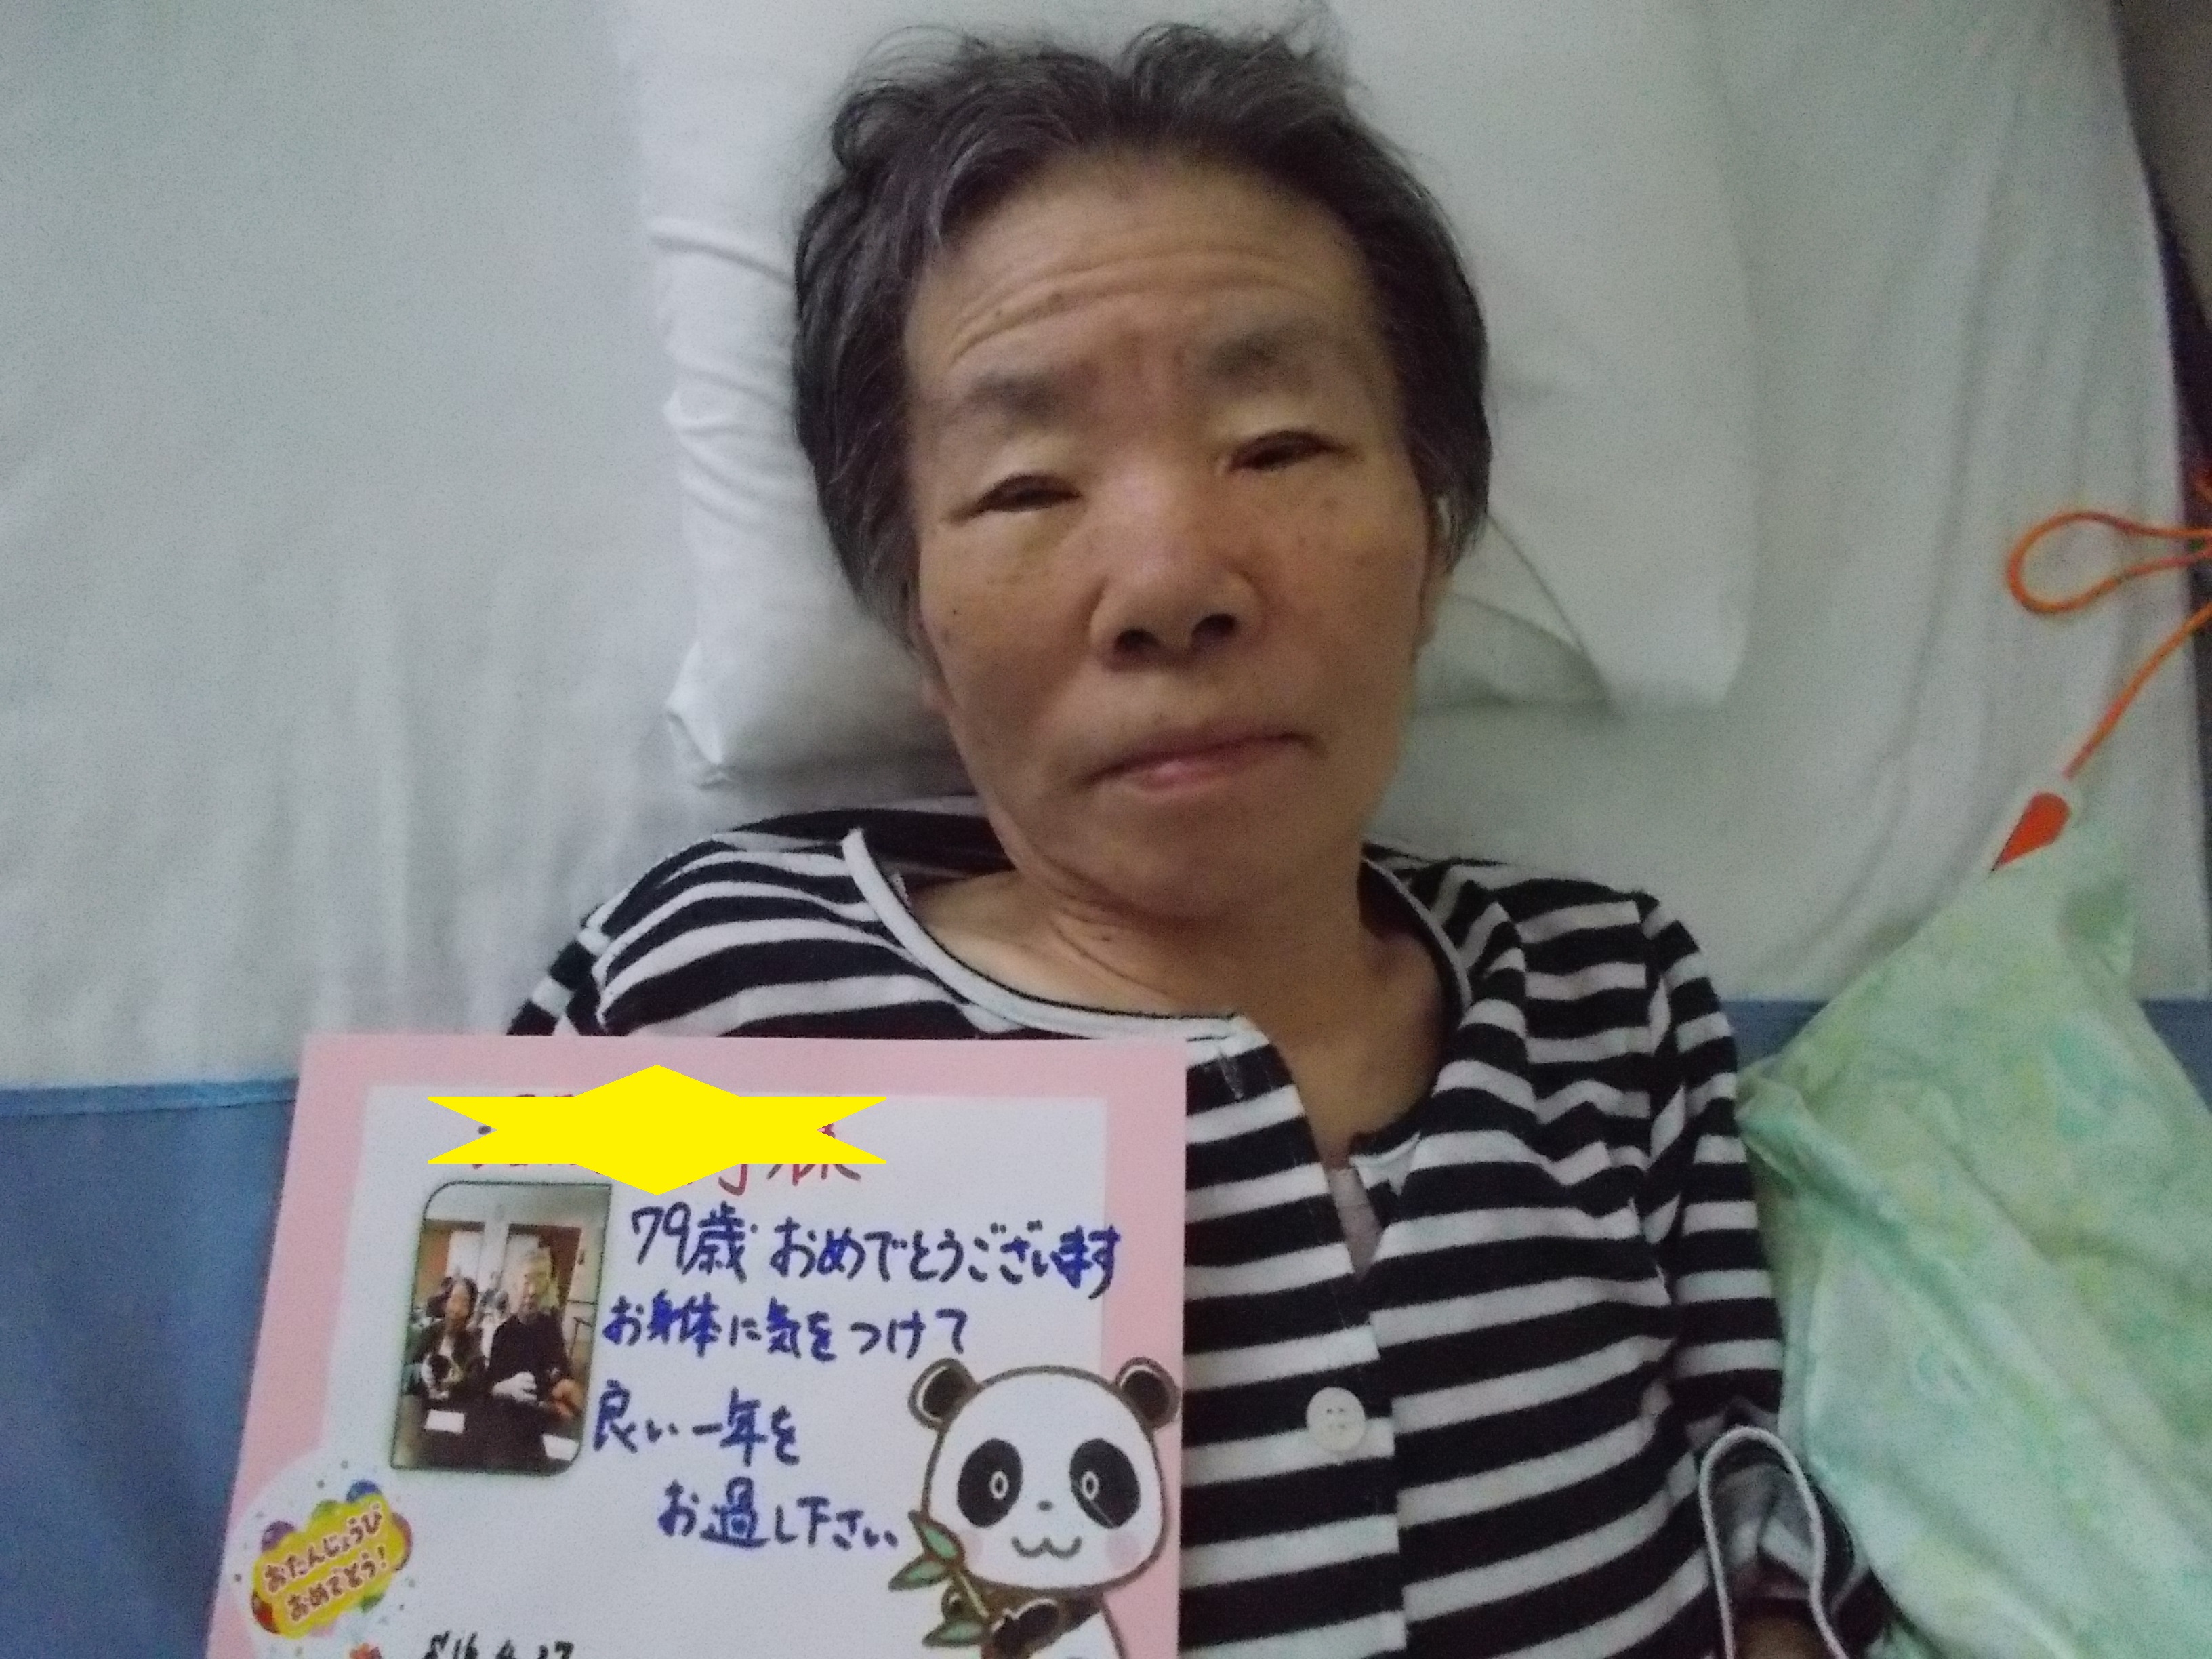 様
79歳 おめでとうございます
お身体に気をつけて
良い一年を
お過し下さい
おたんじょうび
おめでとう！
S16.4.27